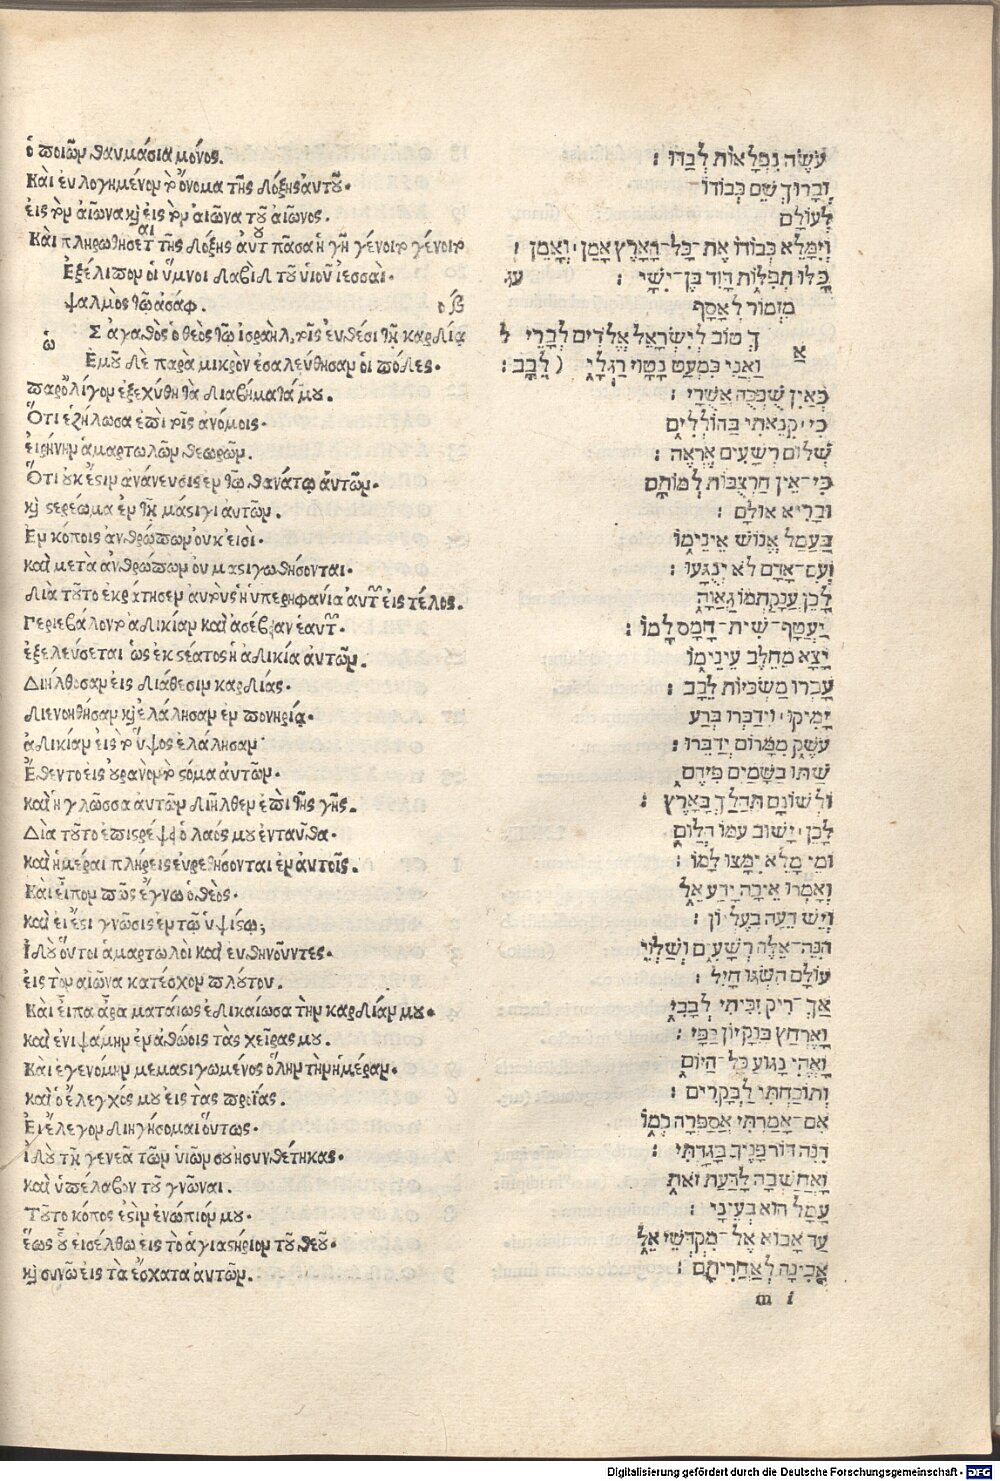 ὁ ποιῶν θαυμάσια μόνος.
Καὶ ἐυλογημένον τὸ ὄνομα τῆς δόξης ἀυτοῦ·
εἰς τὸν αἰῶνα καὶ εἰς τὸν αἰῶνα τοῦ αἰῶνος.
Καὶ πληρωθήσεται τῆς δόξης ἀυτοῦ πᾶσα ἡ γῆ γένοιτο γένοιτο
Ἐξέλιπον οἱ ὕμνοι δαβὶδ τοῦ υἱοῦ ἰεσσαί·
ψαλμὸς τῷ ἀσάφ. οβ
ὡ Σ ἀγαθὸς ὁ θεὸς τῷ ἰσραὴλ, τοῖς ἐυθέσι τῇ καρδίᾳ
Ἐμοῦ δὲ παρὰ μικρὸν ἐσαλεύθησαν οἱ πόδες·
παρολίγον ἐξεχύθη τὰ διαβήματά μου.
Ὅτι ἐζήλωσα ἐπὶ τοῖς ἀνόμοις·
εἰρήνην ἁμαρτωλῶν θεωρῶν.
Ὅτι ουκ ἔστιν ἀνάνευσις ἐν τῷ θανάτῳ ἀυτῶν·
καὶ στερέωμα ἐν τῇ μάστιγι ἀυτῶν.
Ἐν κόποις ἀνθρώπων ουκ εἰσὶ·
καὶ μετὰ ἀνθρώπων ὀυ μαστιγωθήσονται·
Διὰ τοῦτο ἐκράτησεν ἀυτοὺς ἡ ὑπερηφανία ἀυτῶν εἰς τέλος.
Περιεβάλοντο ἀδικίαν καὶ ἀσέβειαν ἑαυτῶν·
ἐξελεύσεται ὡς ἐκ στέατος ἡ ἀδικία ἀυτῶν.
Διήλθοσαν εἰς διάθεσιν καρδίας·
διενοήθησαν καὶ ἐλάλησαν ἐν πονηρίᾳ·
ἀδικίαν εἰς τὸ ὕψος ἐλάλησαν
Ἔθεντο εἰς ουρανὸν τὸ στόμα ἀυτῶν·
καὶ ἡ γλῶσσα ἀυτῶν διῆλθεν ἐπὶ τῆς γῆς.
Διὰ τοῦτο ἐπιστρέψει ὁ λαός μου ἐνταῦθα·
καὶ ἡμέραι πλήρεις ἑυρεθήσονται ἐν ἀυτοῖς.
Καὶ εἶπον πῶς ἔγνω ὁ θεὸς·
καὶ ει ἔστι γνῶσις ἐν τῷ ὑψίστῳ;
Ἰδοὺ οὗτοι ἁμαρτωλοὶ καὶ ευθηνοῦντες·
εἰς τὸν αἰῶνα κατέσχον πλούτου.
Καὶ εἶπα ἆρα ματαίως ἐδικαίωσα τὴν καρδίαν μου·
καὶ ἐνιψάμην ἐν ἀθώοις τὰς χεῖρας μου.
Καὶ ἐγενόμην μεμαστιγωμένος ὅλην τὴν ἡμέραν·
καὶ ὁ ἔλεγχός μου εἰς τὰς πρωΐας.
Ει ἔλεγον διηγήσομαι ὅυτως·
ἰδοὺ τῇ γενεᾷ τῶν υἱῶν σου ἠσυνθέτηκας·
καὶ ὑπέλαβον τοῦ γνῶναι.
Τοῦτο κόπος ἐστὶν ἐνώπιόν μου·
ἕως οὗ εἰσέλθω εἰς τὸ ἁγιαστήριον τοῦ θεοῦ·
καὶ συνῶ εἰς τὰ ἔσχατα ἀυτῶν.
עֹשֶׂה נִפְלָאוֹת לְבַדּוֹ :
וּבָרוּךְ שֵׁם כְּבוֹדוֹ
לְעוֹלָם
וְיִמָּלֵא כְבוֹדוֹ אֶת־כָּל־הָאָרֶץ אָמֵן וְאָמֵן :
כָּלּוּ תְפִלּוֹת דָּוִד בֶּן־יִשָׁי : עג
מִזְמוֹר לְאָסָף
א ךְ טוֹב לְיִשְׂרָאֵל אֱלֹדִים לְבָרֵי ל
וַאֲנִי כִּמְעַט נָטָוּי רַגְלָי ( לֵבָב :
כְּאַיִן שֻׁפְּכֻה אֲשֻׁרָי :
כִּי־קִנֵּאתִי בַּהוֹלְלִים
שְׁלוֹם רְשָׁעִים אֶרְאֶה :
כִּי־אֵין חַרְצֻבּוֹת לְמוֹתָם
וּבָרִיא אוּלָם :
בַּעֲמַל אֱנוֹשׁ אֵינֵימוֹ
וְעִם־אָדָם לֹא יְנֻגָּעוּ :
לָכֵן עֲנָקַתְמוֹ גַאֲוָה
יַעֲטָף־שִׁית־חָמָס לָמוֹ :
יָצָא מֵחֵלֶב עֵינֵימוֹ
עָבְרוּ מַשְׂכִּיּוֹת לֵבָב :
יָמִיקוּ וִידַבְּרוּ בְרָע
עֹשֶׁק מִמָּרוֹם יְדַבֵּרוּ :
שַׁתּוּ בַשָּׁמַיִם פִּידֶם
וּלְשׁוֹנָם תִּהֲלַךְ בָּאָרֶץ :
לָכֵן יָשׁוּב עַמּוֹ הֲלוֹם
וּמֵי מָלֵא יִמָּצוּ לָמוֹ :
וְאָמְרוּ אֵיכָה יָדַע אֵל
וְיֵשׁ דֵּעָה בְעֶלְיוֹן :
הִנֵּה־אֵלֶּה רְשָׁעִים וְשַׁלְוֵי
עוֹלָם הִשְׂגּוּ חָיִל :
אַךְ רִיק זִכִּיתִי לְבָבִי
וָאֶרְחַץ בְּנִקָּיוֹן כַּפָּי :
וָאֱהִי נָגוּעַ כָּל־הַיּוֹם
וְתוֹכַחְתִּי לַבְּקָרִים :
אִם־אָמַרְתִּי אֲסַפְּרָה כְמוֹ
הִנֵּה דוֹר בָּנֶיךָ בָגָדְתִּי :
וָאֲחַשְּׁבָה לָדַעַת זֹאת
עָמָל הוּא בְעֵינָי :
עַד אָבוֹא אֶל־מִקְדְּשֵׁי אֵל
אָבִינָה לְאַחֲרִיתָם :
m i
Digitalisierung gefördert durch die Deutsche Forschungsgemeinschaft - DFG